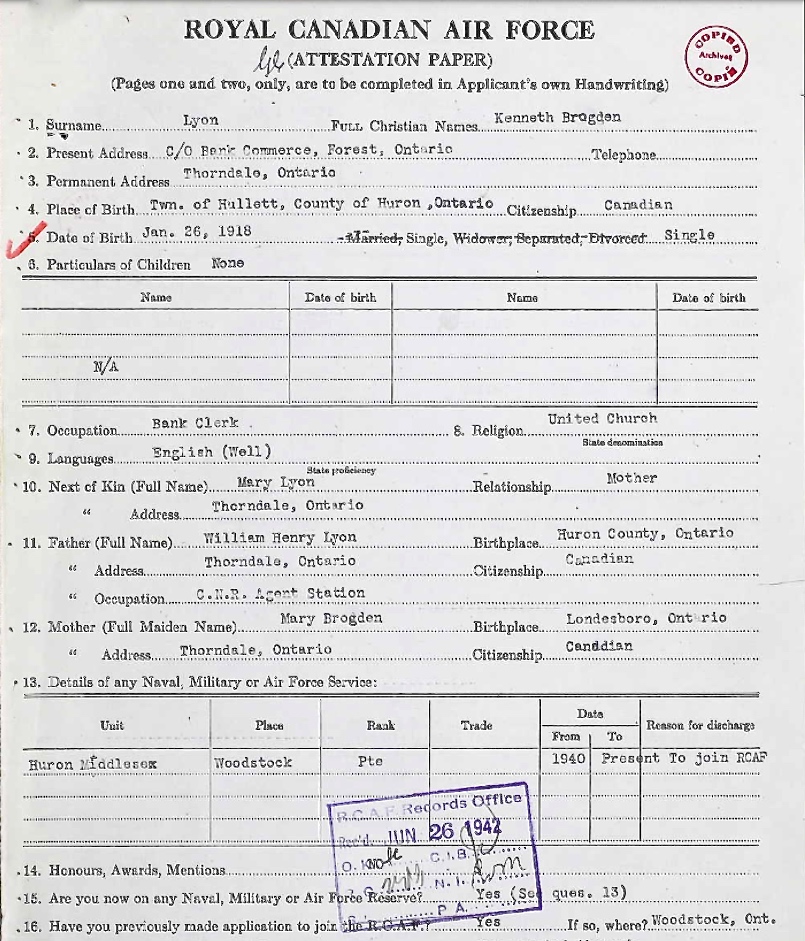 ROYAL CANADIAN AIR FORCE
(ATTESTATION PAPER)
(Pages one and two, only, are to be completed in Applicant's own Handwriting)
COPIED
Archives
COPIÉ
1. Surname Lyon Full Christian Names Kenneth Brogden
2. Present Address C/O Bank Commerce, Forest, Ontario Telephone
3. Permanent Address Thorndale, Ontario
4. Place of Birth Twn. of Hullett, County of Huron ,Ontario Citizenship Canadian
5. Date of Birth Jan. 26, 1918 Married, Single, Widower, Separated, Divorced Single
6. Particulars of Children None
Name Date of birth Name Date of birth
N/A
7. Occupation Bank Clerk 8. Religion United Church
State denomination
9. Languages English (Well)
State proficiency
10. Next of Kin (Full Name) Mary Lyon Relationship Mother
" Address Thorndale, Ontario
11. Father (Full Name) William Henry Lyon Birthplace Huron County, Ontario
" Address Thorndale, Ontario Citizenship Canadian
" Occupation C.N.R. Agent Station
12. Mother (Full Maiden Name) Mary Brogden Birthplace Londesboro, Ontario
" Address Thorndale, Ontario Citizenship Canddian
13. Details of any Naval, Military or Air Force Service:
Unit Place Rank Trade Date Reason for discharge
From To
Huron Middlesex Woodstock Pte 1940 Present To join RCAF
R.C.A.F. Records Office
Rec'd. JUN 26 1942
C.I.B.
N.I.
P.A.
14. Honours, Awards, Mentions
15. Are you now on any Naval, Military or Air Force Reserve? Yes (See ques. 13)
16. Have you previously made application to join the R.C.A.F.? Yes If so, where? Woodstock, Ont.